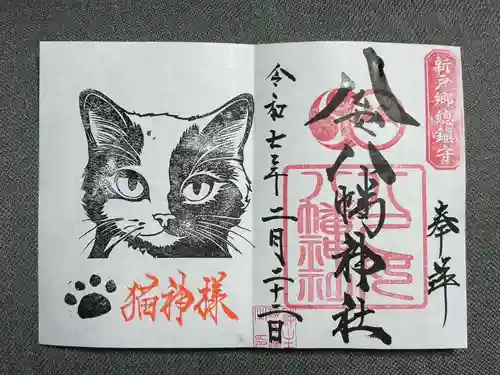 新戸郷總鎮守
奉拝
八幡神社
令和七年二月二十二日
猫神様